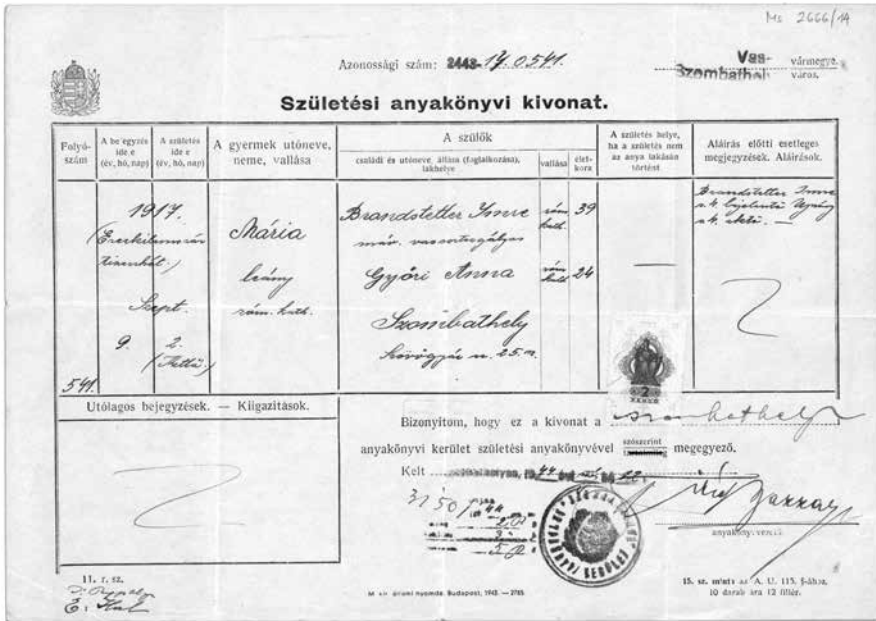 Ms 2666/14
Azonossági szám: 2443- 17.0541.
Vas- vármegye.
Szombathely város.
Születési anyakönyvi kivonat.
Folyó-
szám
A bejegyzés
ideje
(év, hó, nap)
A születés
ideje
(év, hó, nap)
A gyermek utóneve,
neme, vallása
A szülők
családi és utóneve, állása (foglalkozása),
lakhelye
vallása
élet-
kora
A születés helye,
ha a születés nem
az anya lakásán
történt
Aláírás előtti esetleges
megjegyzések. Aláírások.
1917.
(Ezerkilencszáz
tizenhét.)
Szept.
9. 2.
(Kettő.)
541.
Mária
leány
róm. kath.
Brandstetter Imre
róm.
kath.
39
Győri Anna
róm.
kath.
24
Szombathely
25.
Brandstetter Imre
s. k. bejelentő
s. k.
Utólagos bejegyzések. — Kiigazítások.
Bizonyítom, hogy ez a kivonat a szombathelyi
anyakönyvi kerület születési anyakönyvével szószerint megegyező.
Kelt
anyakönyvvezető
11. r. sz.
M. kir. állami nyomda, Budapest, 1943. —
15. sz. minta az A. U. 115. §-ához.
10 darab ára 12 fillér.